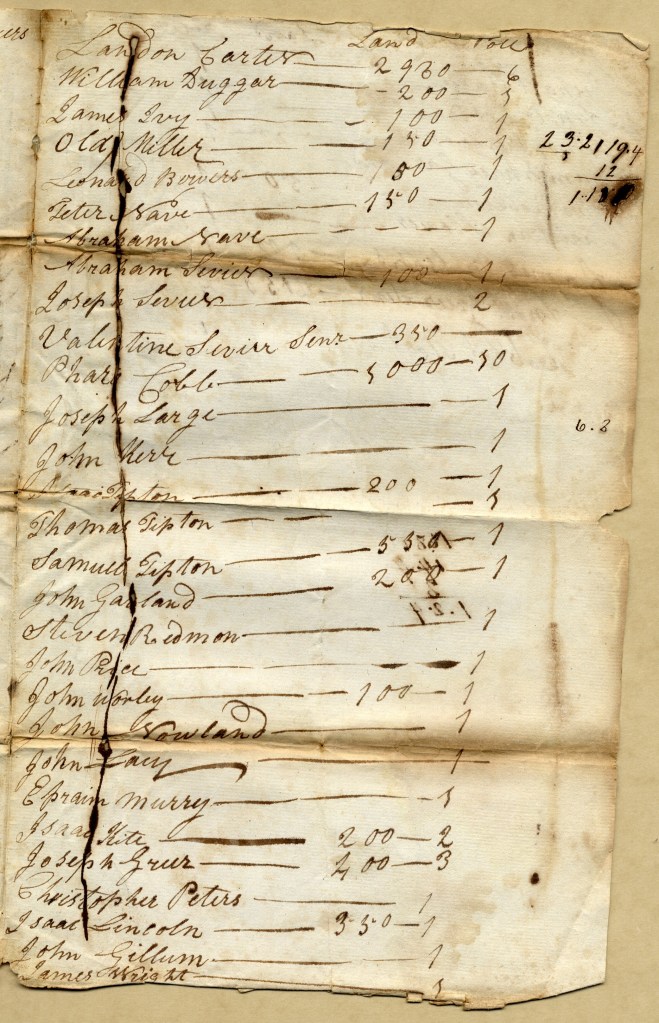 Land Poll
Landon Carter 2930 6
William Duggar 200 5
James Ivy 100 1
Old Miller 150 1
Leonard Bowers 100 1
Peter Nave 150 1
Abraham Nave 1
Abraham Sevier 100 1
Joseph Sevier 2
Valentine Sevier Senr 350
Phare Cobb 5000 50
Joseph Large 1
John Kerr 1
Isaac Tipton 200 1
Thomas Tipton 5
Samuel Tipton 1
John Garland 200 1
Steven Redmon 1
John Price 1
John Worley 100 1
John Nowland 1
John Lacy 1
Epraim Murry 5
Isaac Kite 200 2
Joseph Greer 400 3
Christopher Peters 1
Isaac Lincoln 350 1
John Gillum 1
James Wright 5
23.2119.4
12
6.2
1.2.4